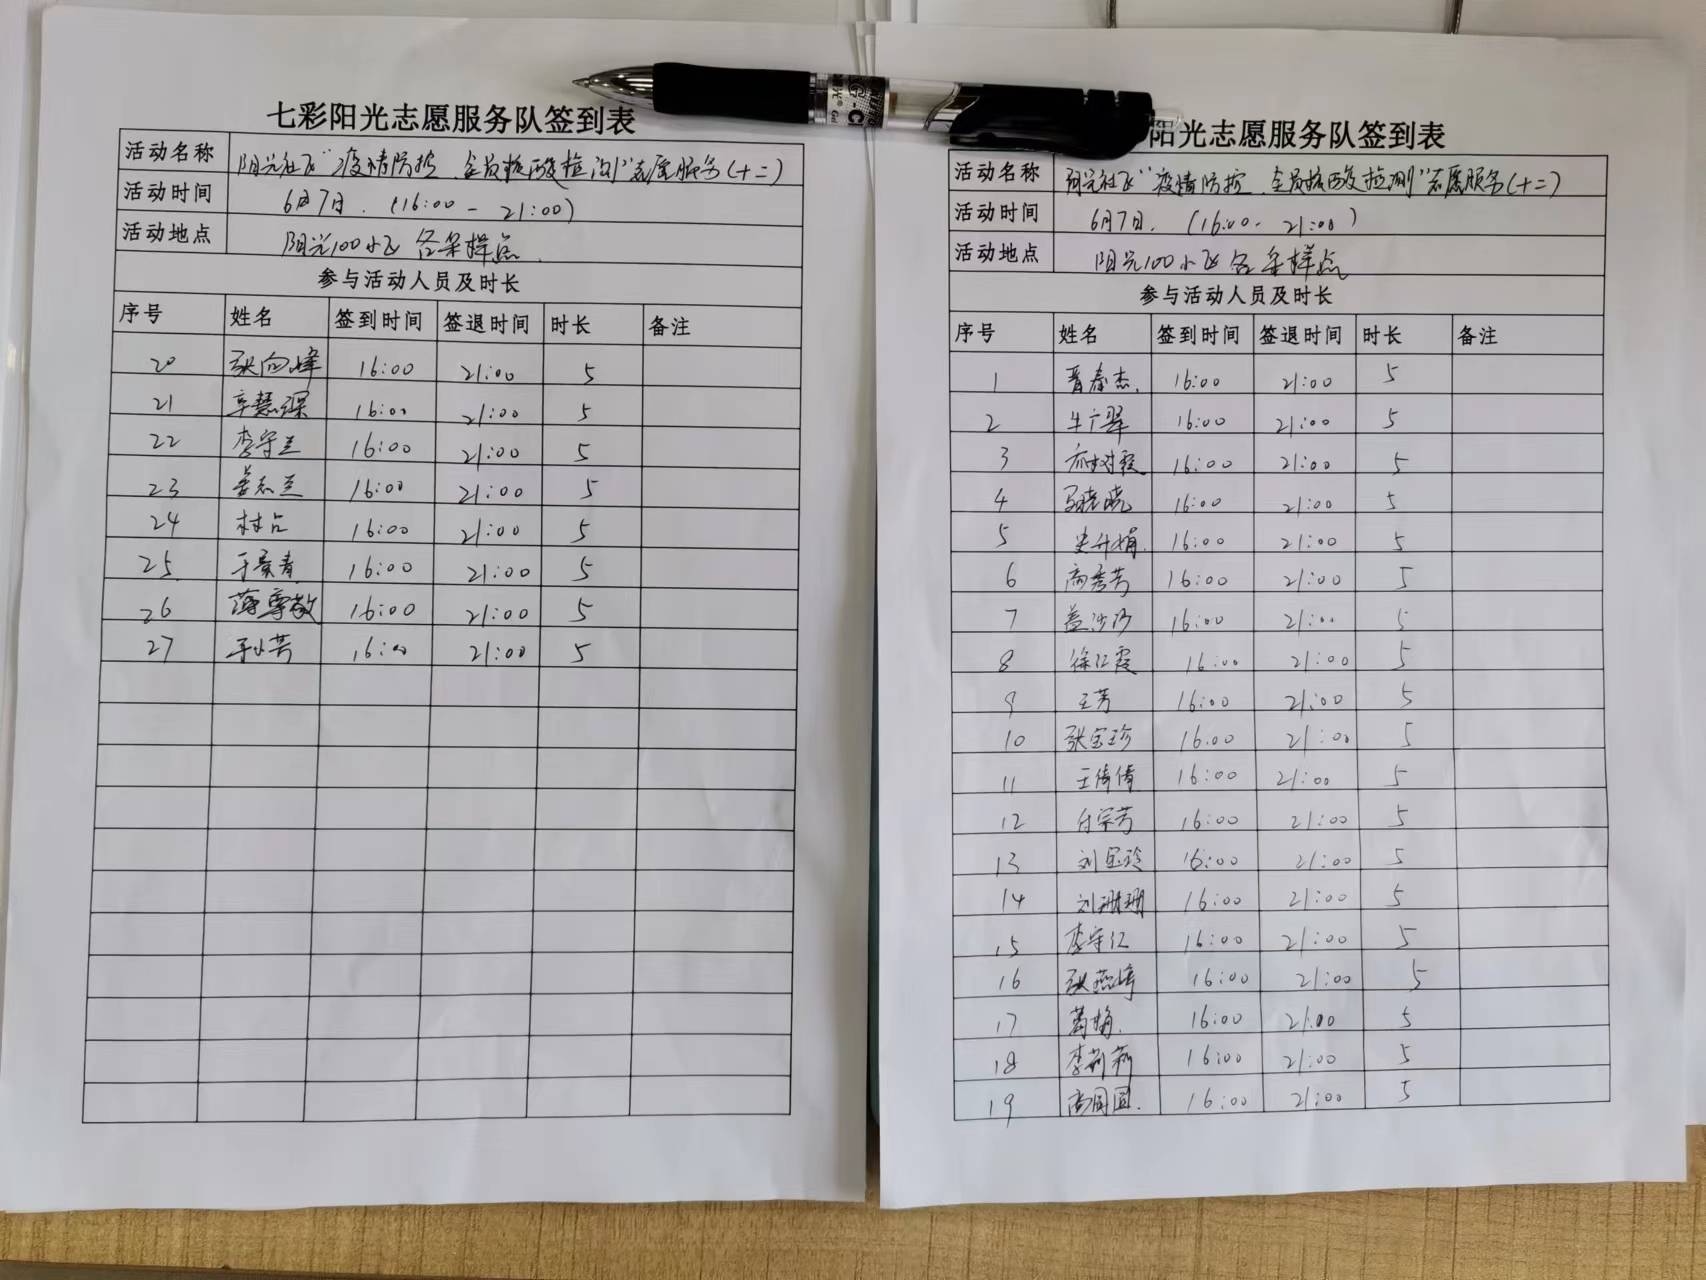 七彩阳光志愿服务队签到表
活动名称 阳光社区"疫情防控 全员核酸检测"志愿服务(十二)
活动时间 6月7日. (16:00 - 21:00)
活动地点 阳光100小区各采样点.
参与活动人员及时长
序号 姓名 签到时间 签退时间 时长 备注
20 张向峰 16:00 21:00 5
21 辛慧深 16:00 21:00 5
22 李守兰 16:00 21:00 5
23 姜志兰 16:00 21:00 5
24 16:00 21:00 5
25 于景青 16:00 21:00 5
26 薄尊敬 16:00 21:00 5
27 于小芳 16:00 21:00 5
阳光志愿服务队签到表
活动名称 阳光社区"疫情防控 全员核酸检测"志愿服务(十二)
活动时间 6月7日. (16:00 - 21:00)
活动地点 阳光100小区各采样点
参与活动人员及时长
序号 姓名 签到时间 签退时间 时长 备注
1 晋春杰. 16:00 21:00 5
2 牛广翠 16:00 21:00 5
3 16:00 21:00 5
4 马晓晓 16:00 21:00 5
5 史升娟. 16:00 21:00 5
6 高秀芳 16:00 21:00 5
7 盖沙沙 16:00 21:00 5
8 徐红霞 16:00 21:00 5
9 王芳 16:00 21:00 5
10 张宝珍 16:00 21:00 5
11 王倩倩 16:00 21:00 5
12 付宗芳 16:00 21:00 5
13 刘宝玲 16:00 21:00 5
14 刘珊珊 16:00 21:00 5
15 李守仁 16:00 21:00 5
16 张燕婷 16:00 21:00 5
17 葛梅. 16:00 21:00 5
18 李莉莉 16:00 21:00 5
19 高圆圆. 16:00 21:00 5